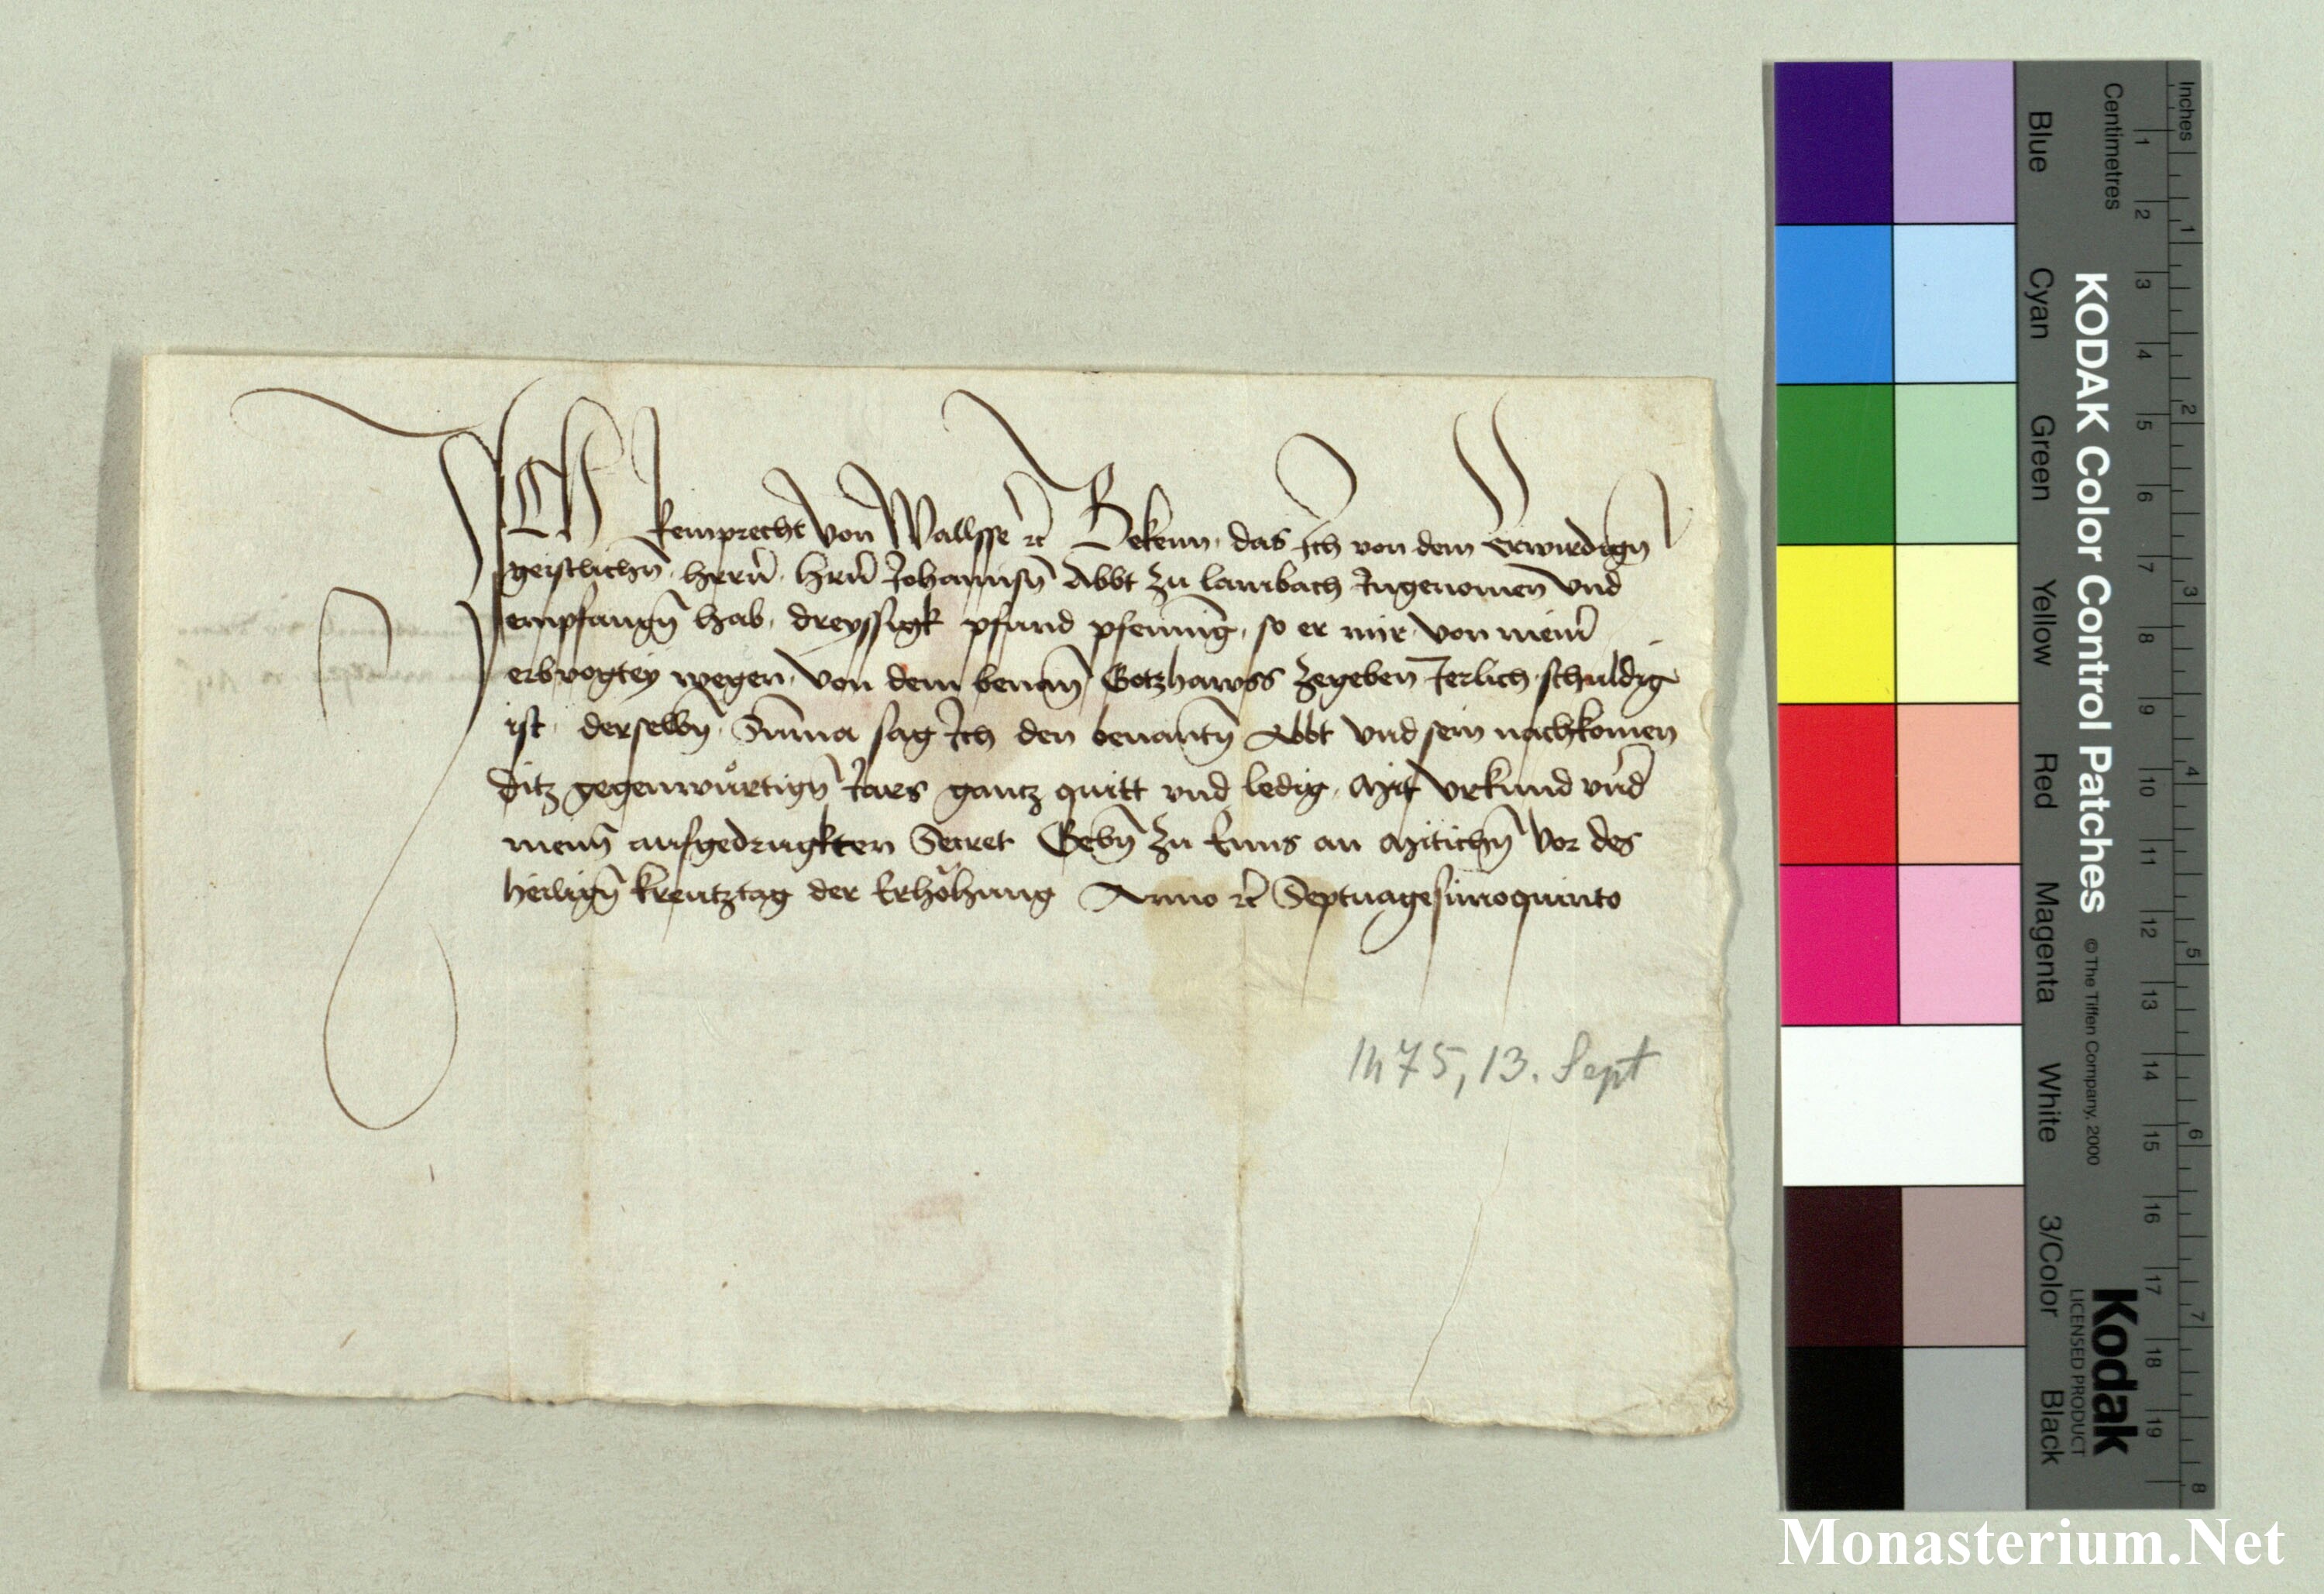 ICH Reinprecht von Wallsse rc Bekenn, das Ich von dem Erwirdign̄
geistlichn̄ hrrn̄ hrn̄ Johannsn̄ Abbt zu lambach Ingenomen und
empfangn̄ hab, dreyssigk pfund pfennīg, so er mir von mein̄
erbvogtey wegen, von dem benan̄ Gotzhawss zegeben Ierlich schuldig
ist, derselbn̄ Suma sag Ich den benantn̄ Abbt vnd sein nachkomen
ditz gegenwůrtign̄ Iars gantz quitt vnd ledig, Mit vrkund vnd̄
meinn̄ aufgedrugkten Secret Gebn̄ zu Enns an Mitichn̄ vor des
heilign̄ kreutztag der Erhöhung Anno rc Septuagesimoquinto
1475, 13. Sept
Inches
Centimetres
1 2 3 4 5 6 7 8 9 10 11 12 13 14 15 16 17 18 19
1 2 3 4 5 6 7 8
KODAK Color Control Patches © The Tiffen Company, 2000
Kodak
LICENSED PRODUCT
Blue Cyan Green Yellow Red Magenta White 3/Color Black
Monasterium.Net